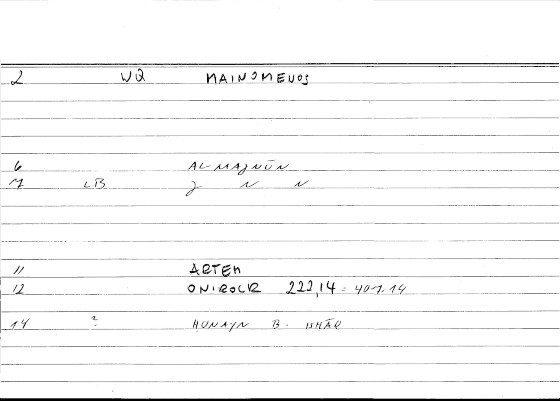 2 WQ MAINOMENOS
6 AL-MAǧNŪN
7 LB ǧ N N
11 ARTEM
12 ONIROCR 222,14 = 407.14
14 ? HUNAYN B. ISHĀQ